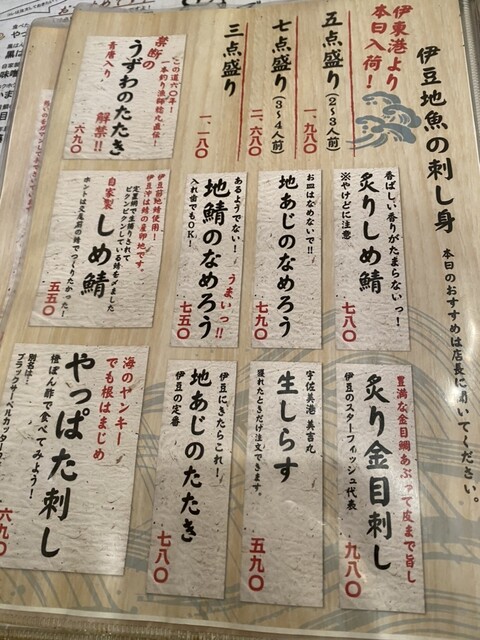 伊豆地魚の刺し身
本日のおすすめは店長に聞いてください。
伊東港より
本日入荷!
五点盛り(2~3人前)
一、九八〇
七点盛り(3~4人前)
二、六八〇
三点盛り
一、一八〇
この道六〇年!
一本釣り漁師稔丸直伝!
禁断の
うずわのたたき
解禁!!
青唐入り
六九〇
香ばしい香りがたまらないっ!
炙りしめ鯖
※やけどに注意
七八〇
お皿はなめないで!!
地あじのなめろう
七九〇
あるようでない!
うまいっ!!
地鯖のなめろう
入れ歯でもOK!
七五〇
伊豆前地鯖使用!
伊豆沖は鯖の産卵地です。
定置網で生捕りされて
ピクンピクンしている鯖を〆ました
自家製
しめ鯖
ホントは文庵前の鯖でつくりたかった!
五五〇
豊満な金目鯛あぶって皮まで旨し
炙り金目刺し
伊豆のスターフィッシュ代表
九八〇
宇佐美港 美吉丸
生しらす
獲れたときだけ注文できます。
五九〇
伊豆にきたらこれ!
地あじのたたき
伊豆の定番
七九〇
海のヤンキー
でも根はまじめ
やっぱた刺し
橙ぽん酢で食べてみよう!
別名は…
ブラックサーベルカッター
六九〇